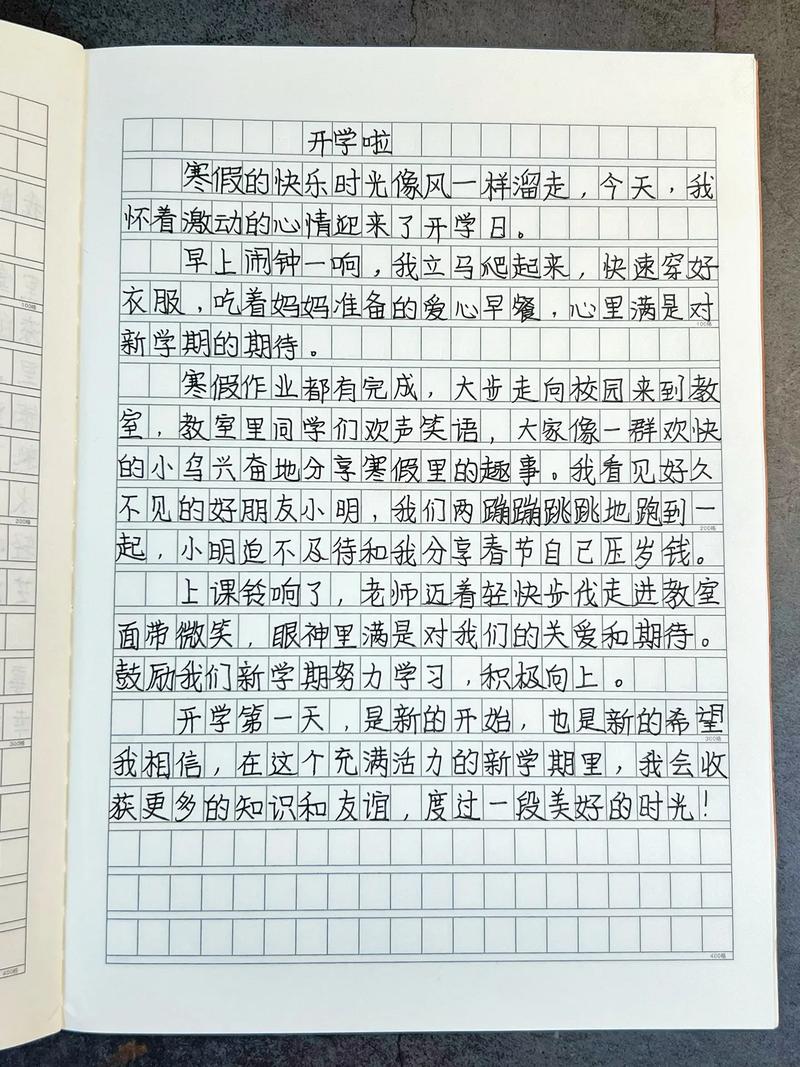 开学啦
寒假的快乐时光像风一样溜走，今天，我
怀着激动的心情迎来了开学日。
早上闹钟一响，我立马爬起来，快速穿好
衣服，吃着妈妈准备的爱心早餐，心里满是对
100格
新学期的期待。
寒假作业都有完成，大步走向校园来到教
室，教室里同学们欢声笑语，大家像一群欢快
的小鸟兴奋地分享寒假里的趣事。我看见好久
不见的好朋友小明，我们两蹦蹦跳跳地跑到一
200格
起，小明迫不及待和我分享春节自己压岁钱。
上课铃响了，老师迈着轻快步伐走进教室
面带微笑，眼神里满是对我们的关爱和期待。
鼓励我们新学期努力学习，积极向上。
开学第一天，是新的开始，也是新的希望
300格
我相信，在这个充满活力的新学期里，我会收
获更多的知识和友谊，度过一段美好的时光！
400格